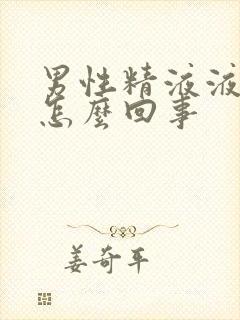 男性精液液
怎麼回事
姜奇平